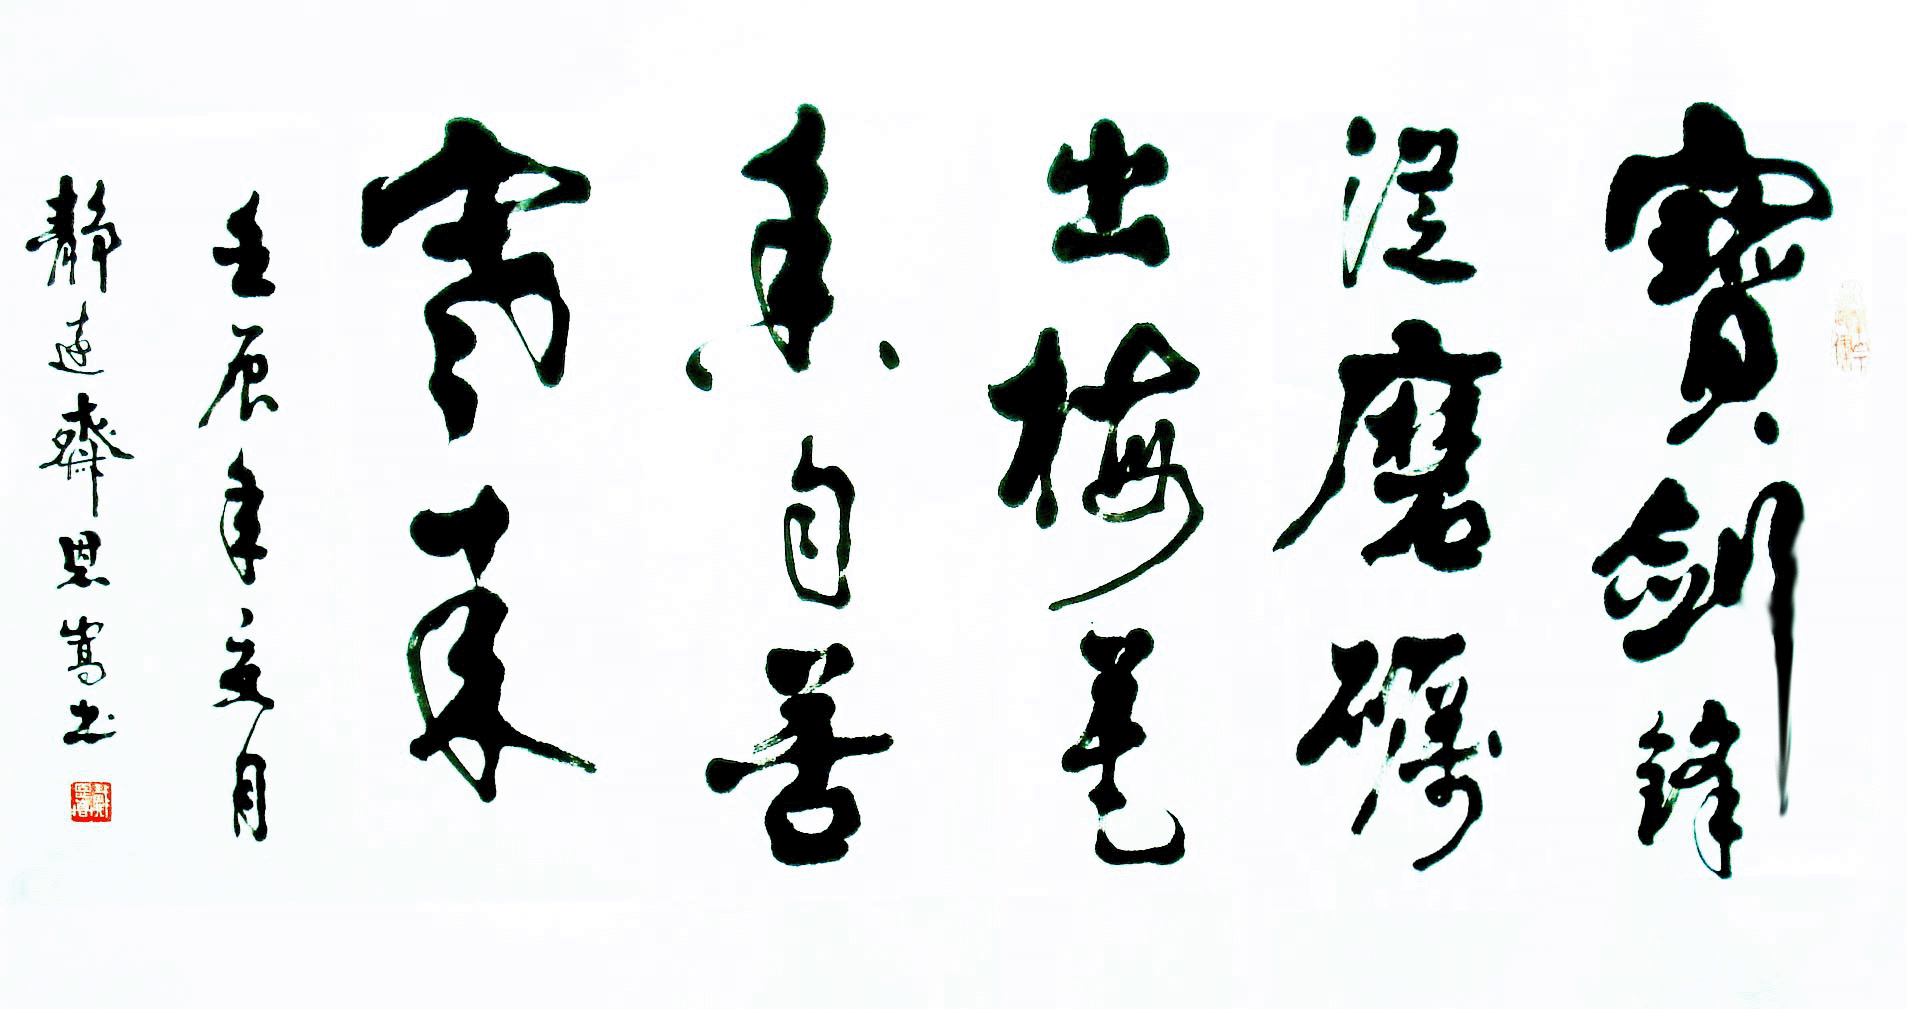 寶劍鋒
從磨礪
出梅花
香自苦
寒來
壬辰年月
靜遠齋恩嵩书